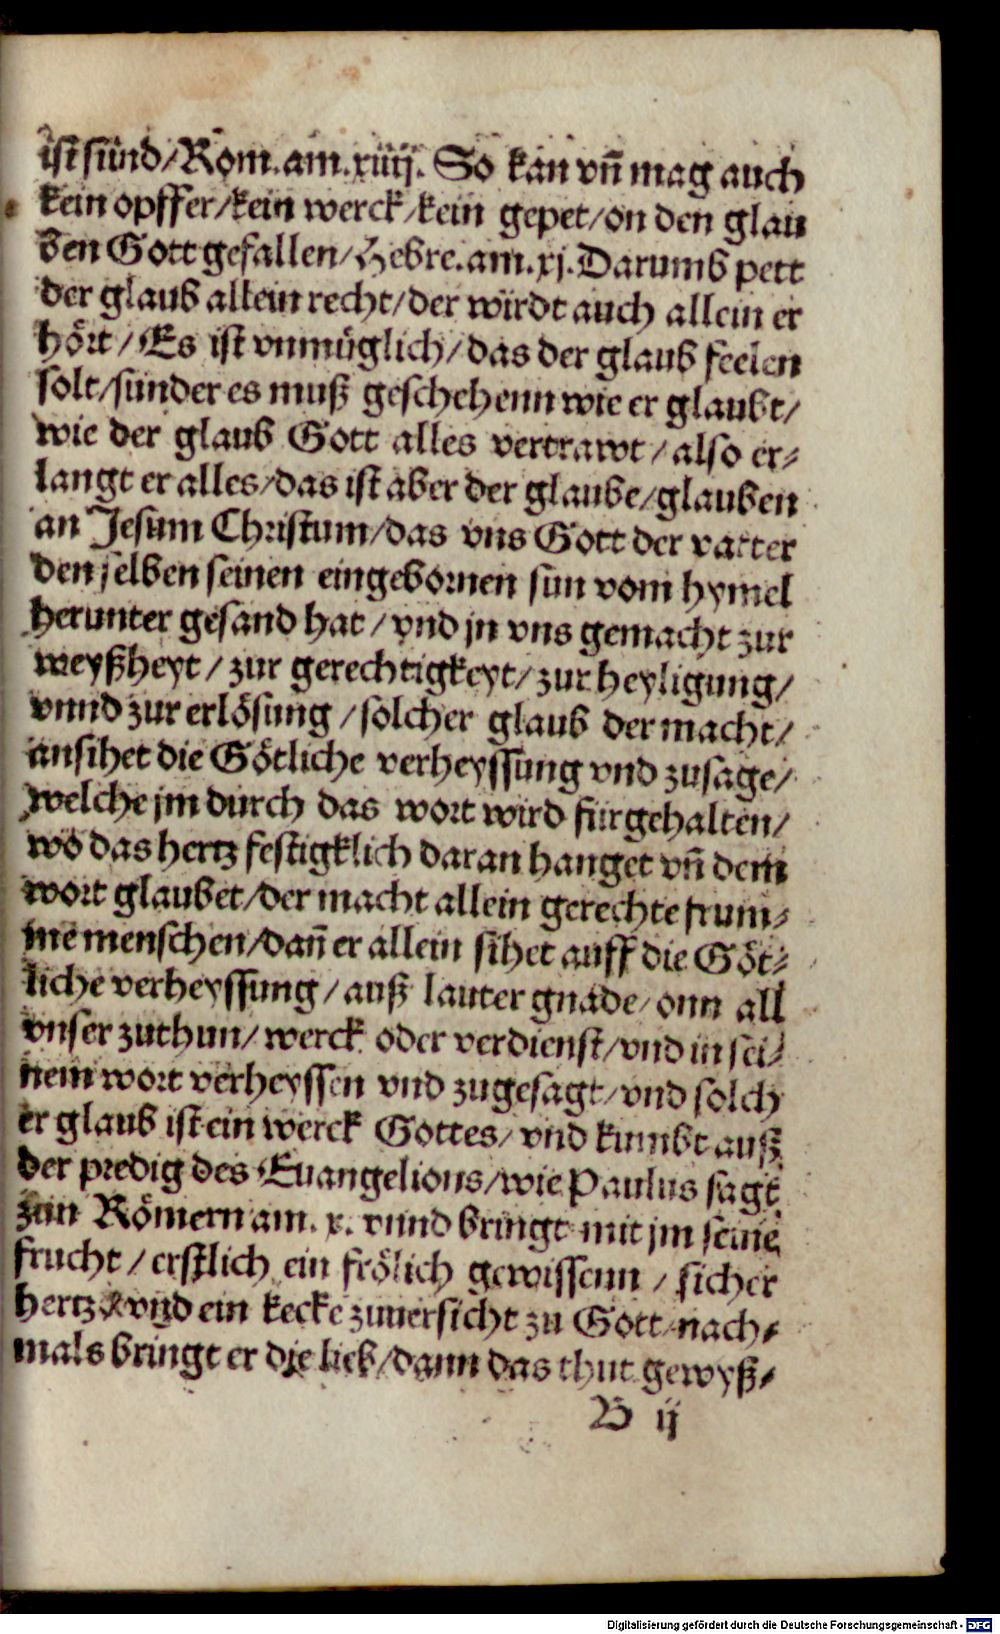 ist sünd/Rom.am.xiiij. So kan vñ mag auch
kein opffer/kein werck/kein gepet/on den glau
ben Gott gefallen/Hebre.am.xj.Darumb pett
der glaub allein recht/der wirdt auch allein er
hört/Es ist vnmüglich/das der glaub feelen
solt/sunder es muß geschehenn wie er glaubt/
wie der glaub Gott alles vertrawt/also er⸗
langt er alles/das ist aber der glaube/glauben
an Jesum Christum/das vns Gott der vatter
den selben seinen eingebornen sun vom hymel
herunter gesand hat/vnd jn vns gemacht zur
weyßheyt/zur gerechtigkeyt/zur heyligung/
vnnd zur erlösung/solcher glaub der macht/
ansihet die Götliche verheyssung vnd zusage/
welche jm durch das wort wird fürgehalten/
wo das hertz festigklich daran hanget vñ dem
wort glaubet/der macht allein gerechte frum⸗
me menschen/dañ er allein sihet auff die Göt⸗
liche verheyssung/auß lauter gnade/onn all
vnser zuthun/werck oder verdienst/vnd in sei⸗
nem wort verheyssen vnd zugesagt/vnd solch
er glaub ist ein werck Gottes/vnd kumbt auß
der predig des Euangelions/wie Paulus sagt
zun Römern am.x.vnnd bringt mit jm seine
frucht/erstlich ein frölich gewissenn/sicher
hertz vnd ein kecke zuuersicht zu Gott/nach⸗
mals bringt er die lieb/dann das thut gewyß⸗
B ij
Digitalisierung gefördert durch die Deutsche Forschungsgemeinschaft - DFG